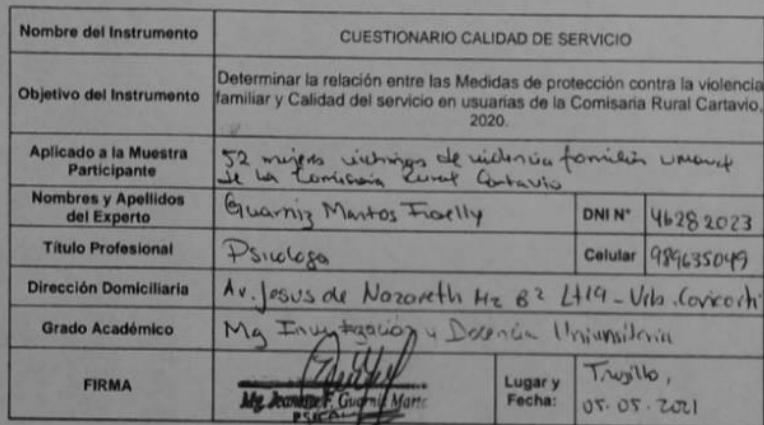 Nombre del Instrumento
CUESTIONARIO CALIDAD DE SERVICIO
Objetivo del Instrumento
Determinar la relación entre las Medidas de protección contra la violencia
familiar y Calidad del servicio en usuarias de la Comisaria Rural Cartavio,
2020.
Aplicado a la Muestra
Participante
52 mujeres victimas de violencia familiar
de la Comisaria Rural Cartavio
Nombres y Apellidos
del Experto
Guarniz Martos
DNI N° 46282023
Título Profesional
Psicologa
Celular 989635049
Dirección Domiciliaria
Av. Jesus de Nazareth Mz B2 Lt19 - Urb.
Grado Académico
Mg Investigación y Docencia Universitaria
FIRMA
Mg. F. Guarniz
Lugar y
Fecha:
Trujillo,
05.05.2021